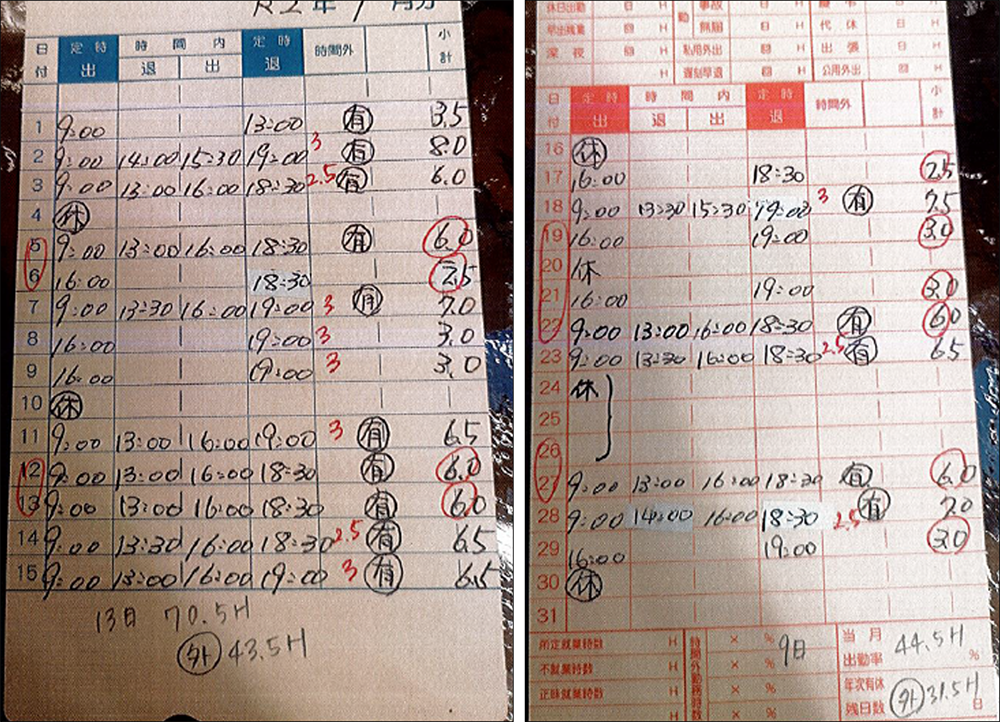 R2年 月分
日付 定時 出 時間内 退 出 定時 退 時間外 小計
1 9:00 13:00 有 3.5
2 9:00 14:00 15:30 19:00 3 有 8.0
3 9:00 13:00 16:00 18:30 2.5 有 6.0
4 休
5 9:00 13:00 16:00 18:30 有 6.0
6 16:00 18:30 2.5
7 9:00 13:30 16:00 19:00 3 有 7.0
8 16:00 19:00 3 3.0
9 16:00 19:00 3 3.0
10 休
11 9:00 13:00 16:00 19:00 3 有 6.5
12 9:00 13:00 16:00 18:30 有 6.0
13 9:00 13:00 16:00 18:30 有 6.0
14 9:00 13:30 16:00 18:30 2.5 有 6.5
15 9:00 13:00 16:00 19:00 3 有 6.5
13日 70.5H
外 43.5H
休日出勤 日 H 勤 事故 日 慶弔 日
早出残業 回 H 無届 日 代休 日
深夜 回 H 私用外出 回 H 出張 日
H 遅刻早退 回 H 公用外出 回 H
日付 定時 出 時間内 退 出 定時 退 時間外 小計
16 休
17 16:00 18:30 2.5
18 9:00 13:30 15:30 19:00 3 有 7.5
19 16:00 19:00 3.0
20 休
21 16:00 19:00 3.0
22 9:00 13:00 16:00 18:30 有 6.0
23 9:00 13:30 16:00 18:30 2.5 有 6.5
24 休
25
26
27 9:00 13:00 16:00 18:30 有 6.0
28 9:00 14:00 16:00 18:30 2.5 有 7.0
29 16:00 19:00 3.0
30 休
31
所定就業時数 H 時間外勤務時数 × % 9日 当月出勤率 44.5H %
不就業時数 H × %
正味就業時数 H × % 年次有休残日数 外 31.5H 日